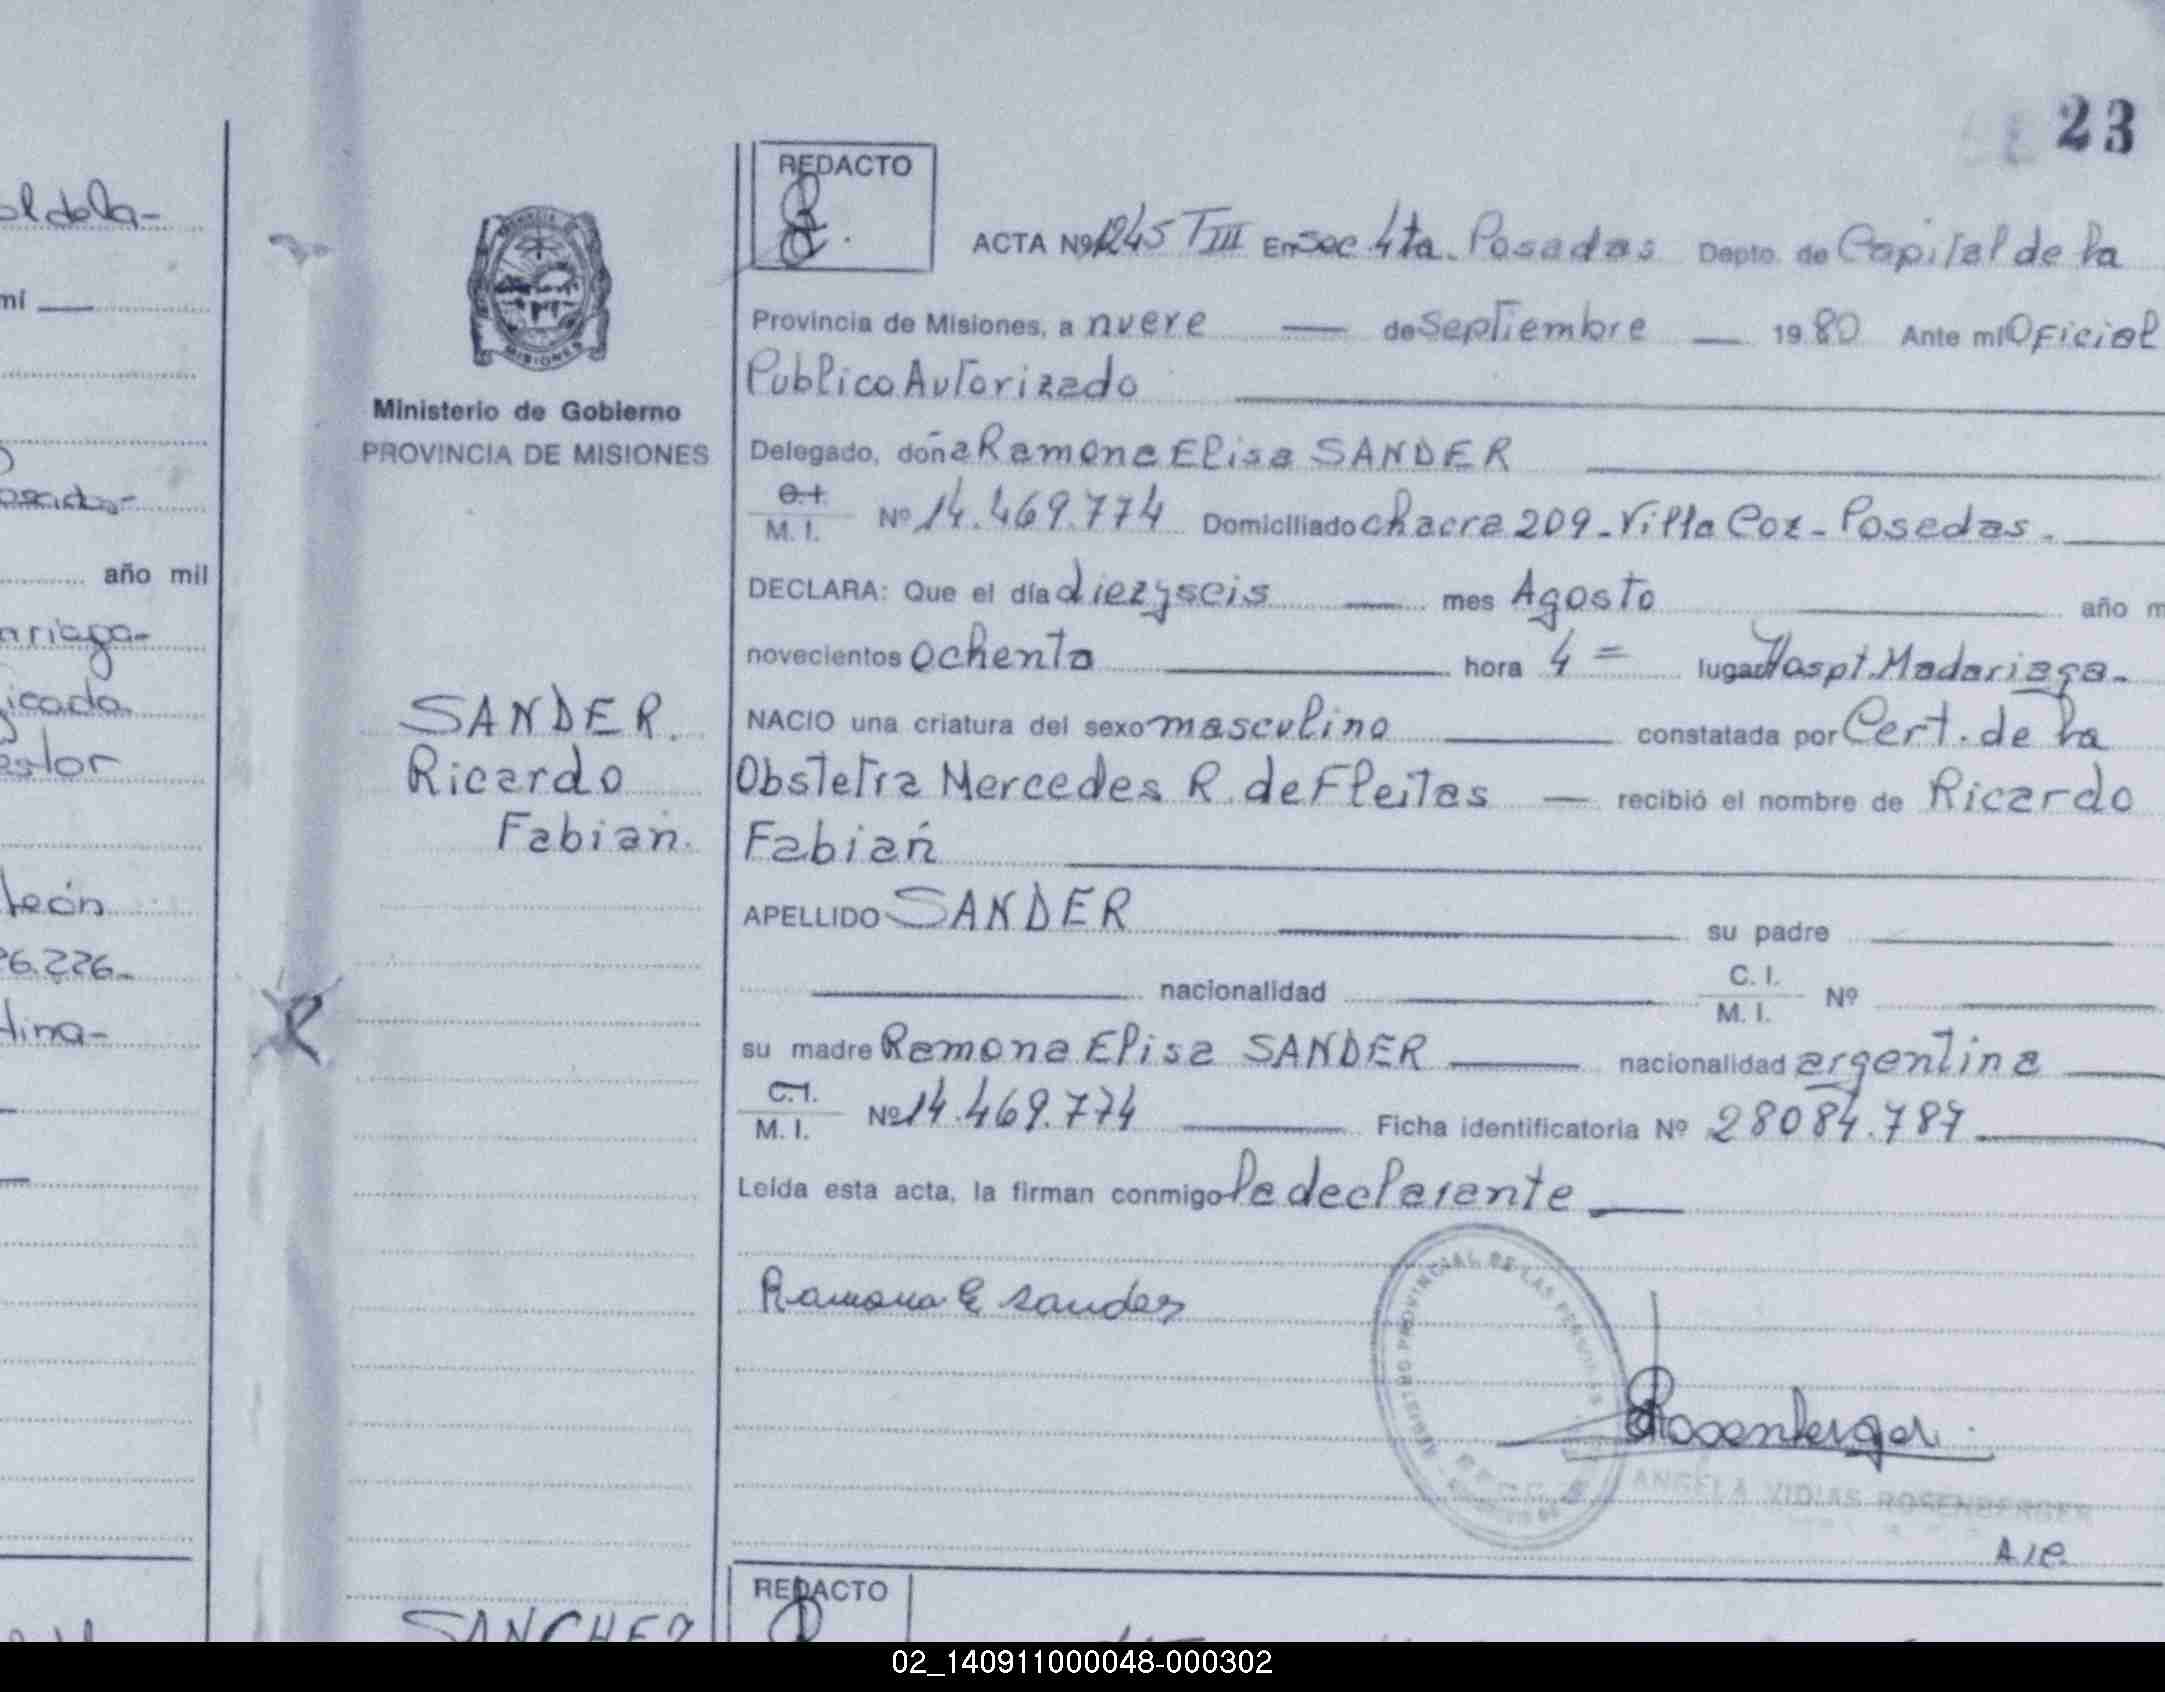 23
ol de la-
mi
osadas-
año mil
ariaga-
icada
estor
león
26.226-
tina-
MISIONES
Ministerio de Gobierno
PROVINCIA DE MISIONES
SANDER.
Ricardo
Fabián.
REDACTO
ACTA Nº 1245 TIII En Sec 4ta. Posadas Depto. de Capital de la
Provincia de Misiones, a nueve — de Septiembre — 1980 Ante mí Oficial
Publico Autorizado
Delegado, doña Ramona Elisa SANDER
C.I.
M. I. Nº 14.469.774 Domiciliado chacra 209 - Villa Coz - Posadas.
DECLARA: Que el día diezyseis — mes Agosto año m
novecientos ochenta hora 4 = lugar Hospt. Madariaga-
NACIO una criatura del sexo masculino constatada por Cert. de la
Obstetra Mercedes R. de Fleitas — recibió el nombre de Ricardo
Fabián
APELLIDO SANDER su padre
nacionalidad C. I.
M. I. Nº
su madre Ramona Elisa SANDER nacionalidad argentina
C.I.
M. I. Nº 14.469.774 Ficha identificatoria Nº 28084.787
Leída esta acta, la firman conmigo la declarante
Ramona E sander
REGISTRO PROVINCIAL DE LAS PERSONAS
Rosenberger
ANGELA VIDIAS ROSENBERGER
REDACTO
SANCHEZ
02_140911000048-000302